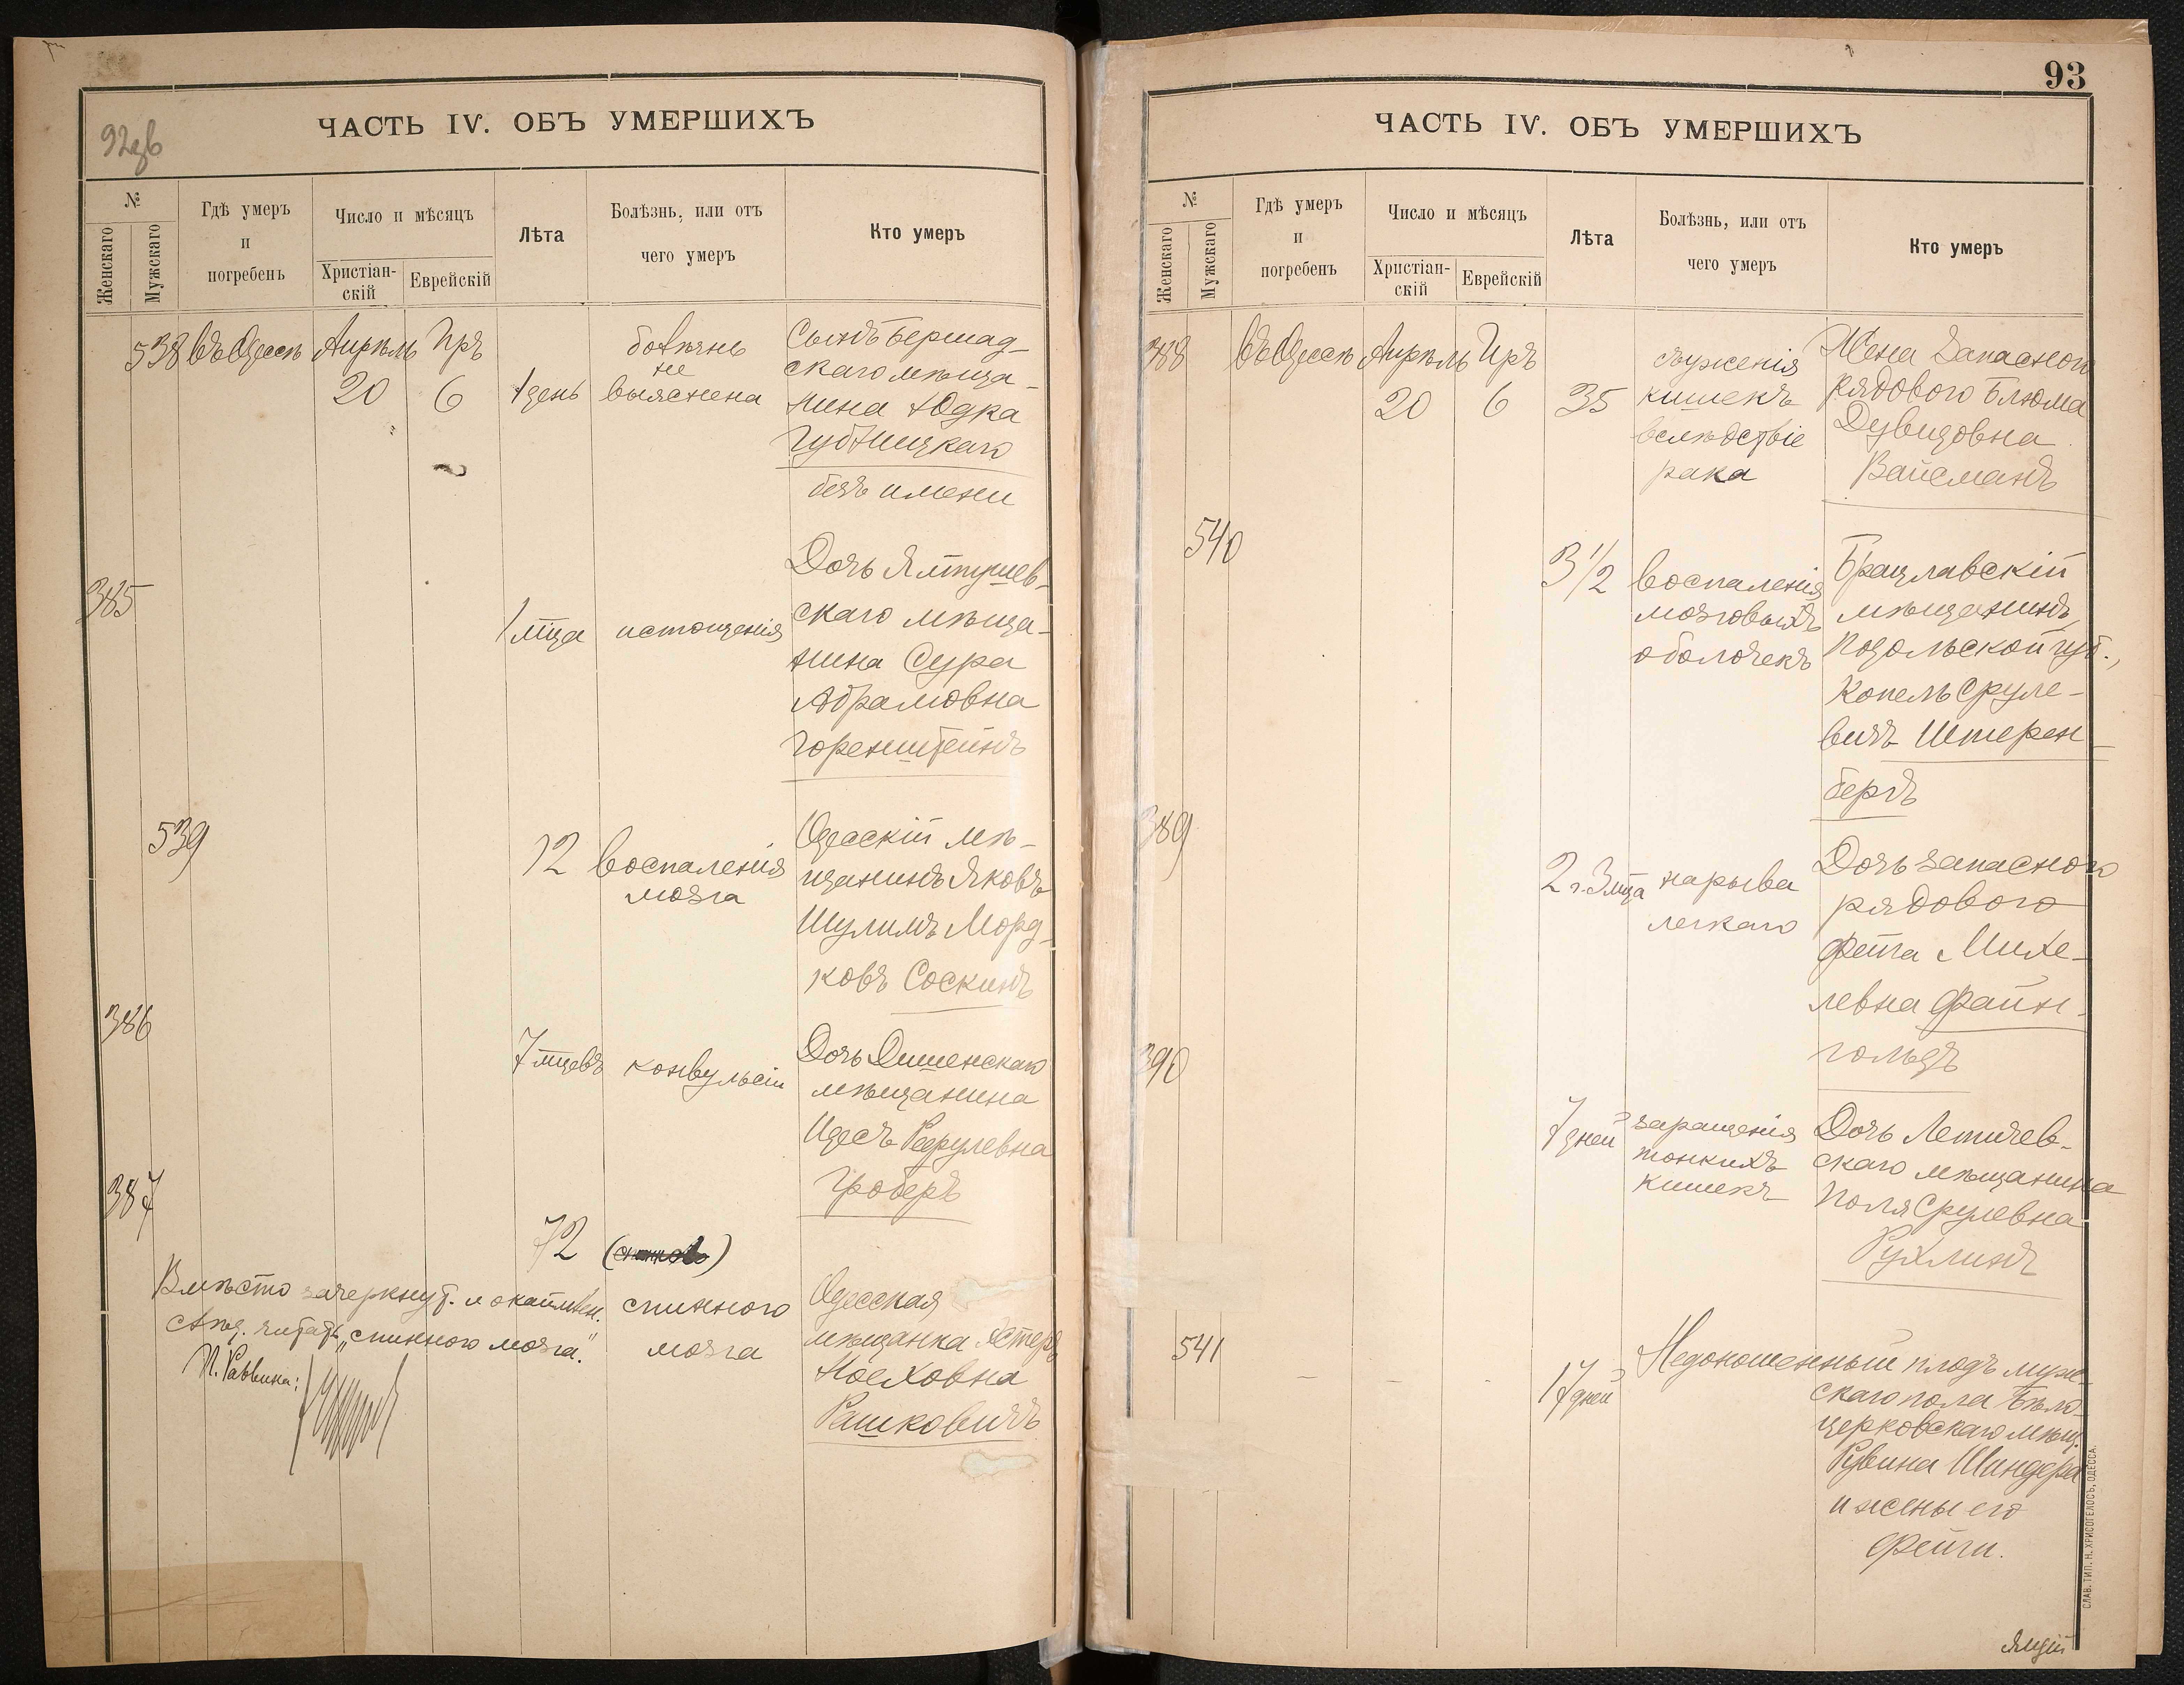 92об
ЧАСТЬ IV. ОБЪ УМЕРШИХЪ
№
Женскаго
Мужскаго
Гдѣ умеръ
и
погребенъ
Число и мѣсяцъ
Христіан-
скій
Еврейскій
Лѣта
Болѣзнь, или отъ
чего умеръ
Кто умеръ
538 въ Одессѣ Апрѣль Иръ
20 6 1 день
болѣзнь
не
выяснена
Сынъ Бершад-
скаго мѣща-
нина Юдка
Губницкаго
безъ имени
385
1 мца истощенія
Дочь Ялтушев-
скаго мѣща-
нина Сура
Абрамовна
Горенштейнъ
539
12 воспаленія
мозга
Одесскій мѣ-
щанинъ Яковъ
Шулимъ Морд-
ковъ Соскинъ
386
7 мцевъ конвульсіи
Дочь Дишенскаго
мѣщанина
Идесъ
Гроберъ
387
72
спинного
мозга
Одесская
мѣщанка Эстеръ
Ноеховна
Рашковичъ
Вмѣсто зачеркнут. и
читать „спинного мозга."
И. Раввина:
93
ЧАСТЬ IV. ОБЪ УМЕРШИХЪ
№
Женскаго
Мужскаго
Гдѣ умеръ
и
погребенъ
Число и мѣсяцъ
Христіан-
скій
Еврейскій
Лѣта
Болѣзнь, или отъ
чего умеръ
Кто умеръ
388 въ Одессѣ Апрѣль Иръ
20 6 35
съуженія
кишекъ
вслѣдствіе
рака
Жена Запасного
рядового Блюма
Дувидовна
Вайсманъ
540
3 1/2 воспаленія
мозговыхъ
оболочекъ
Брацлавскій
мѣщанинъ,
Подольской губ.,
Копель Сруле-
вичъ Штерен-
бергъ
389
2 г. 3 мца нарыва
легкаго
Дочь запасного
рядового
Фейга Михе-
левна Файн-
гольдъ
390
7 дней заращенія
тонкихъ
кишекъ
Дочь Летичев-
скаго мѣщанина
Поля Срулевна
Рухлинъ
541
17 дней
Недоношенный плодъ муж-
скаго пола Бѣло-
церковскаго мѣщ.
Рувина Шиндера
и жены его
Фейги.
СЛАВ. ТИП. Н. ХРИСОГЕЛОСЪ, ОДЕССА.